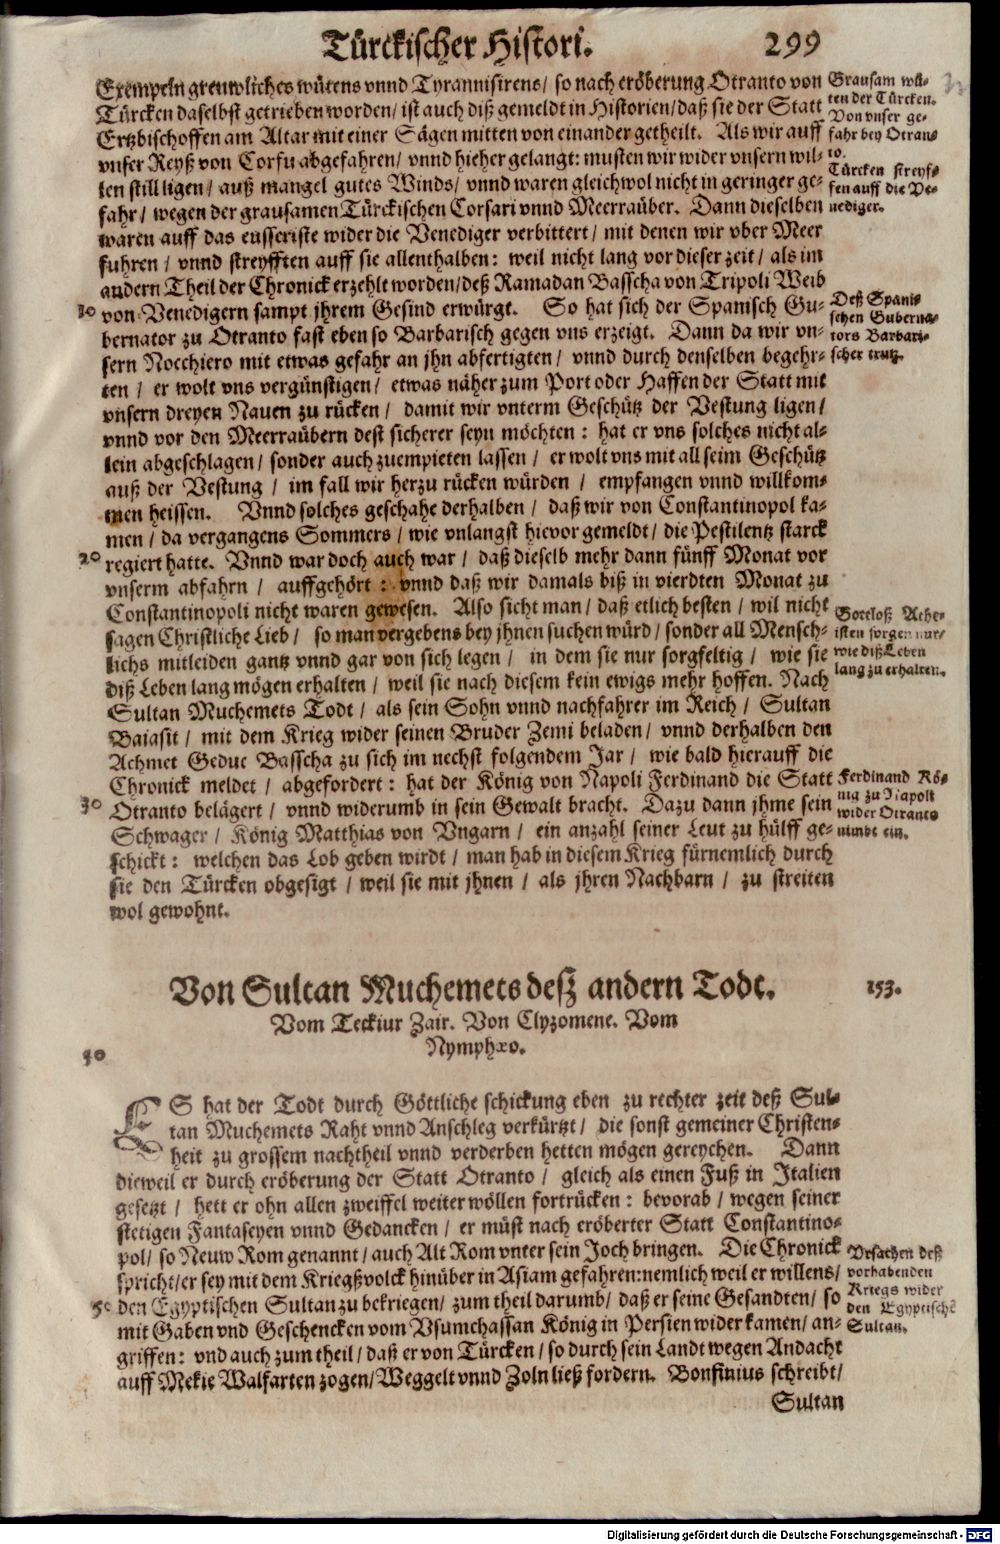 Türckischer Histori. 299
Exempeln greuwliches wütens vnnd Tyrannisirens/ so nach eröberung Otranto von
Türcken daselbst getrieben worden/ ist auch diß gemeldt in Historien/ daß sie der Statt
Ertzbischoffen am Altar mit einer Sägen mitten von einander getheilt. Als wir auff
vnser Reyß von Corfu abgefahren/ vnnd hieher gelangt: musten wir wider vnsern wil-
len still ligen/ auß mangel gutes Winds/ vnnd waren gleichwol nicht in geringer ge-
fahr/ wegen der grausamen Türckischen Corsari vnnd Meerraüber. Dann dieselben
waren auff das eusseriste wider die Venediger verbittert/ mit denen wir vber Meer
fuhren/ vnnd streyfften auff sie allenthalben: weil nicht lang vor dieser zeit/ als im
andern Theil der Chronick erzehlt worden/ deß Ramadan Basscha von Tripoli Weib
von Venedigern sampt jhrem Gesind erwürgt. So hat sich der Spanisch Gu-
bernator zu Otranto fast eben so Barbarisch gegen vns erzeigt. Dann da wir vn-
sern Nocchiero mit etwas gefahr an jhn abfertigten/ vnnd durch denselben begehr-
ten/ er wolt vns vergünstigen/ etwas näher zum Port oder Haffen der Statt mit
vnsern dreyen Nauen zu rücken/ damit wir vnterm Geschütz der Vestung ligen/
vnnd vor den Meerraübern dest sicherer seyn möchten: hat er vns solches nicht al-
lein abgeschlagen/ sonder auch zuempieten lassen/ er wolt vns mit all seim Geschütz
auß der Vestung/ im fall wir herzu rücken würden/ empfangen vnnd willkom-
men heissen. Vnnd solches geschahe derhalben/ daß wir von Constantinopol ka-
men/ da vergangens Sommers/ wie vnlangst hievor gemeldt/ die Pestilentz starck
regiert hatte. Vnnd war doch auch war/ daß dieselb mehr dann fünff Monat vor
vnserm abfahrn/ auffgehört: vnnd daß wir damals biß in vierdten Monat zu
Constantinopoli nicht waren gewesen. Also sicht man/ daß etlich besten/ wil nicht
sagen Christliche Lieb/ so man vergebens bey jhnen suchen würd/ sonder all Mensch-
lichs mitleiden gantz vnnd gar von sich legen/ in dem sie nur sorgfeltig/ wie sie
diß Leben lang mögen erhalten/ weil sie nach diesem kein ewigs mehr hoffen. Nach
Sultan Muchemets Todt/ als sein Sohn vnnd nachfahrer im Reich/ Sultan
Baiasit/ mit dem Krieg wider seinen Bruder Zemi beladen/ vnnd derhalben den
Achmet Geduc Basscha zu sich im nechst folgendem Jar/ wie bald hierauff die
Chronick meldet/ abgefordert: hat der König von Napoli Ferdinand die Statt
Otranto belägert/ vnnd widerumb in sein Gewalt bracht. Dazu dann jhme sein
Schwager/ König Matthias von Vngarn/ ein anzahl seiner Leut zu hülff ge-
schickt: welchen das Lob geben wirdt/ man hab in diesem Krieg fürnemlich durch
sie den Türcken obgesigt/ weil sie mit jhnen/ als jhren Nachbarn/ zu streiten
wol gewohnt.
Grausam wü-
ten der Türcken.
Von vnser ge-
fahr bey Otran-
to.
Türcken streyf-
fen auff die Ve-
nediger.
10
Deß Spani-
schen Guberna-
tors Barbari-
scher trutz.
20
Gottloß Athe-
isten sorgen nur/
wie diß Leben
lang zu erhalten.
30
Ferdinand Kö-
nig zu Napoli
wider Otranto
nimbt ein.
Von Sultan Muchemets deß andern Todt. 153.
Vom Teckiur Zair. Von Clyzomene. Vom
Nymphæo.
40
ES hat der Todt durch Göttliche schickung eben zu rechter zeit deß Sul-
tan Muchemets Raht vnnd Anschleg verkürtzt/ die sonst gemeiner Christen-
heit zu grossem nachtheil vnnd verderben hetten mögen gereychen. Dann
dieweil er durch eröberung der Statt Otranto/ gleich als einen Fuß in Italien
gesetzt/ hett er ohn allen zweiffel weiter wöllen fortrücken: bevorab/ wegen seiner
stetigen Fantaseyen vnnd Gedancken/ er müst nach eröberter Statt Constantino-
pol/ so Neuw Rom genannt/ auch Alt Rom vnter sein Joch bringen. Die Chronick
spricht/ er sey mit dem Kriegßvolck hinüber in Asiam gefahren: nemlich weil er willens/
den Egyptischen Sultan zu bekriegen/ zum theil darumb/ daß er seine Gesandten/ so
mit Gaben vnd Geschencken vom Vsumchassan König in Persien wider kamen/ an-
griffen: vnd auch zum theil/ daß er von Türcken/ so durch sein Landt wegen Andacht
auff Mekie Walfarten zogen/ Weggelt vnnd Zoln ließ fordern. Bonfinius schreibt/
Sultan
Vrsachen deß
vorhabenden
Kriegs wider
den Egyptische
Sultan.
50
Digitalisierung gefördert durch die Deutsche Forschungsgemeinschaft - DFG